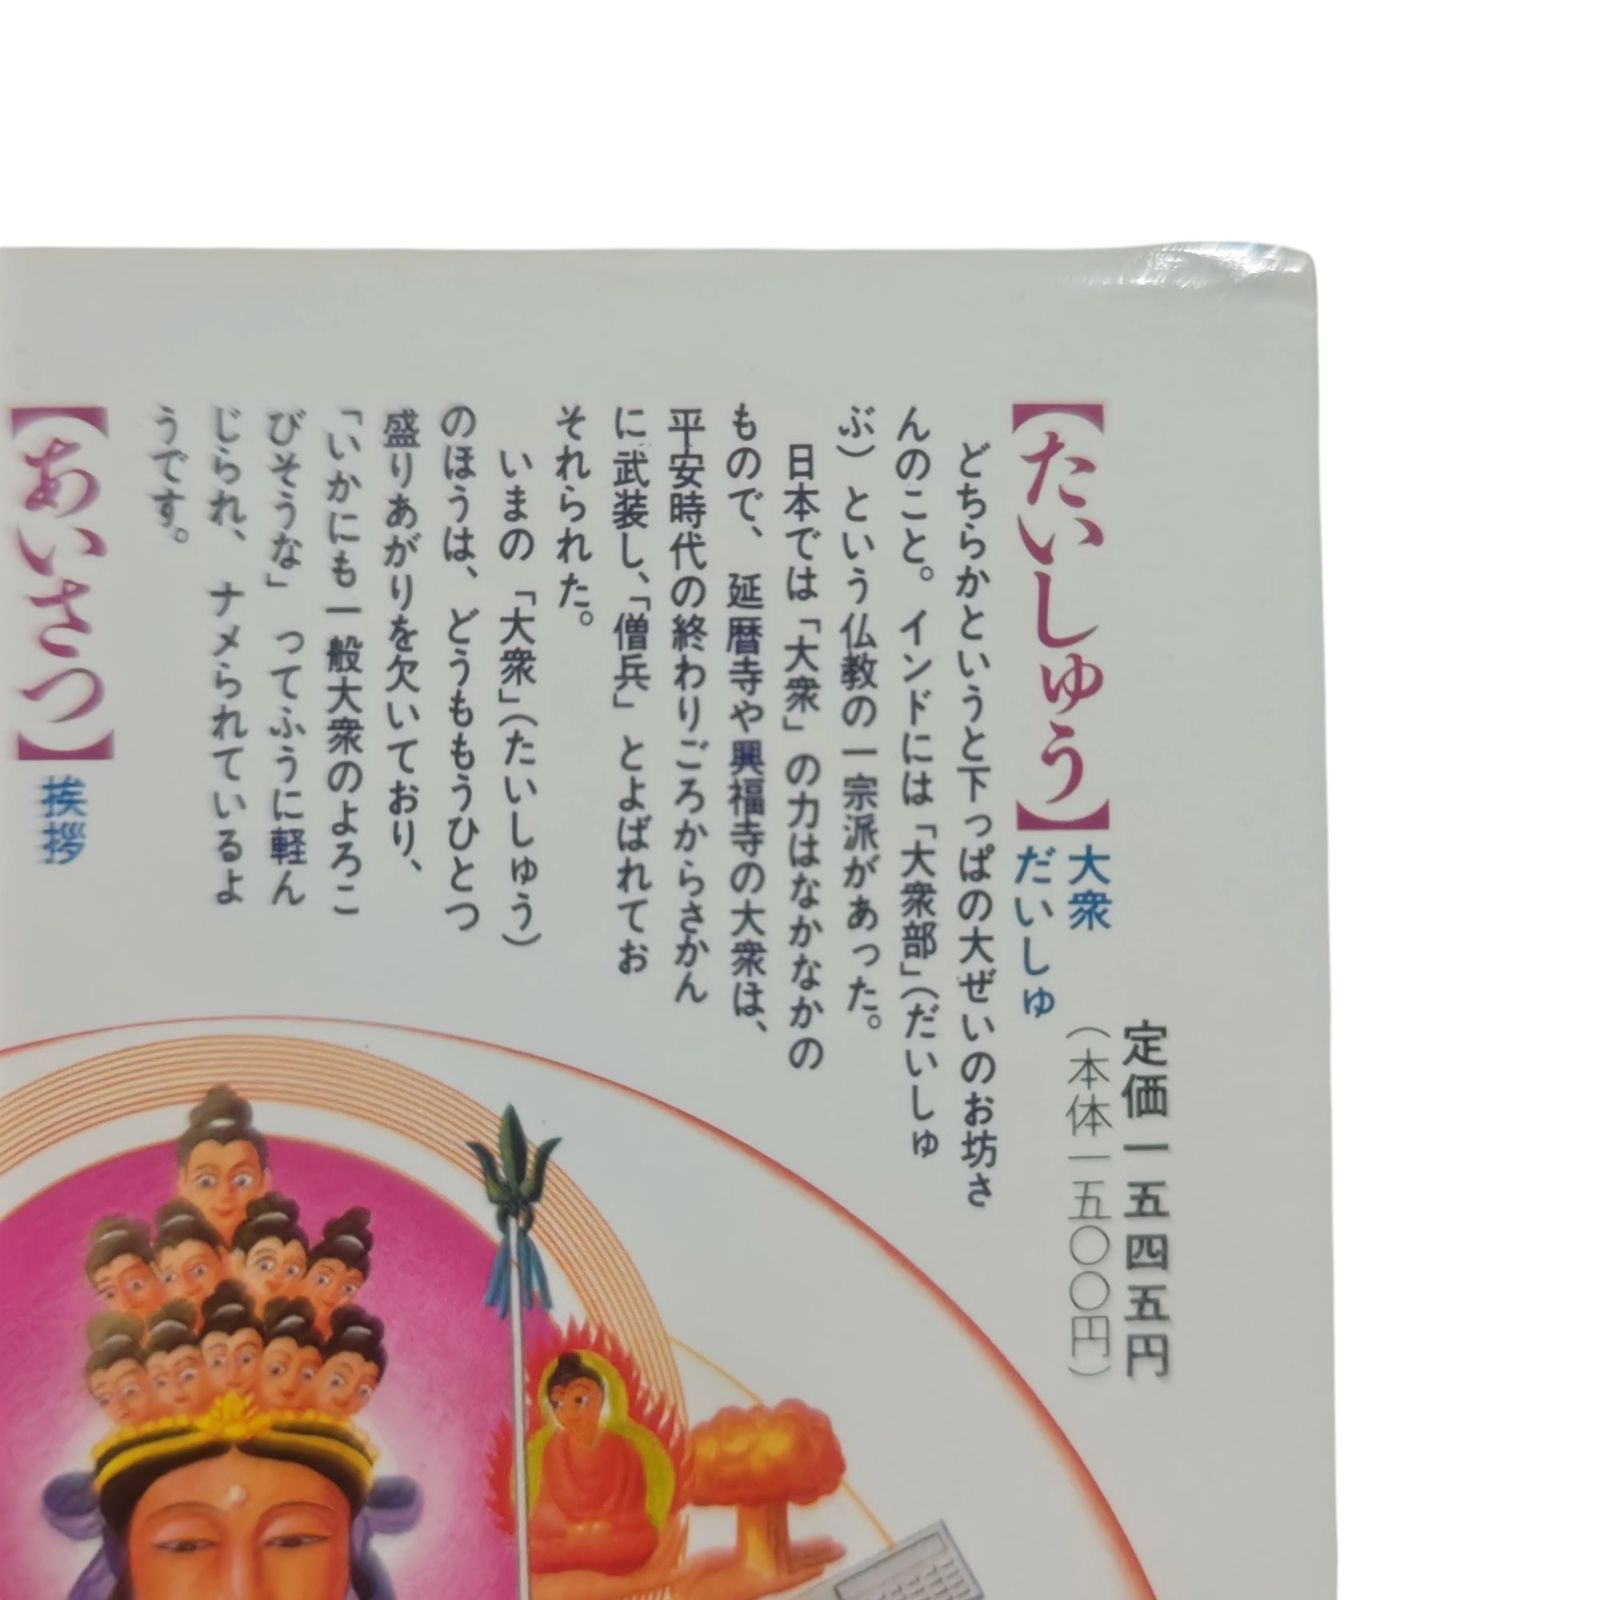 定価一五四五円
（本体一五〇〇円）
【たいしゅう】大衆
だいしゅ
どちらかというと下っぱの大ぜいのお坊さ
んのこと。インドには「大衆部」（だいしゅ
ぶ）という仏教の一宗派があった。
日本では「大衆」の力はなかなかの
もので、延暦寺や興福寺の大衆は、
平安時代の終わりごろからさかん
に武装し、「僧兵」とよばれてお
それられた。
いまの「大衆」（たいしゅう）
のほうは、どうももうひとつ
盛りあがりを欠いており、
「いかにも一般大衆のよろこ
びそうな」ってふうに軽ん
じられ、ナメられているよ
うです。
【あいさつ】挨拶